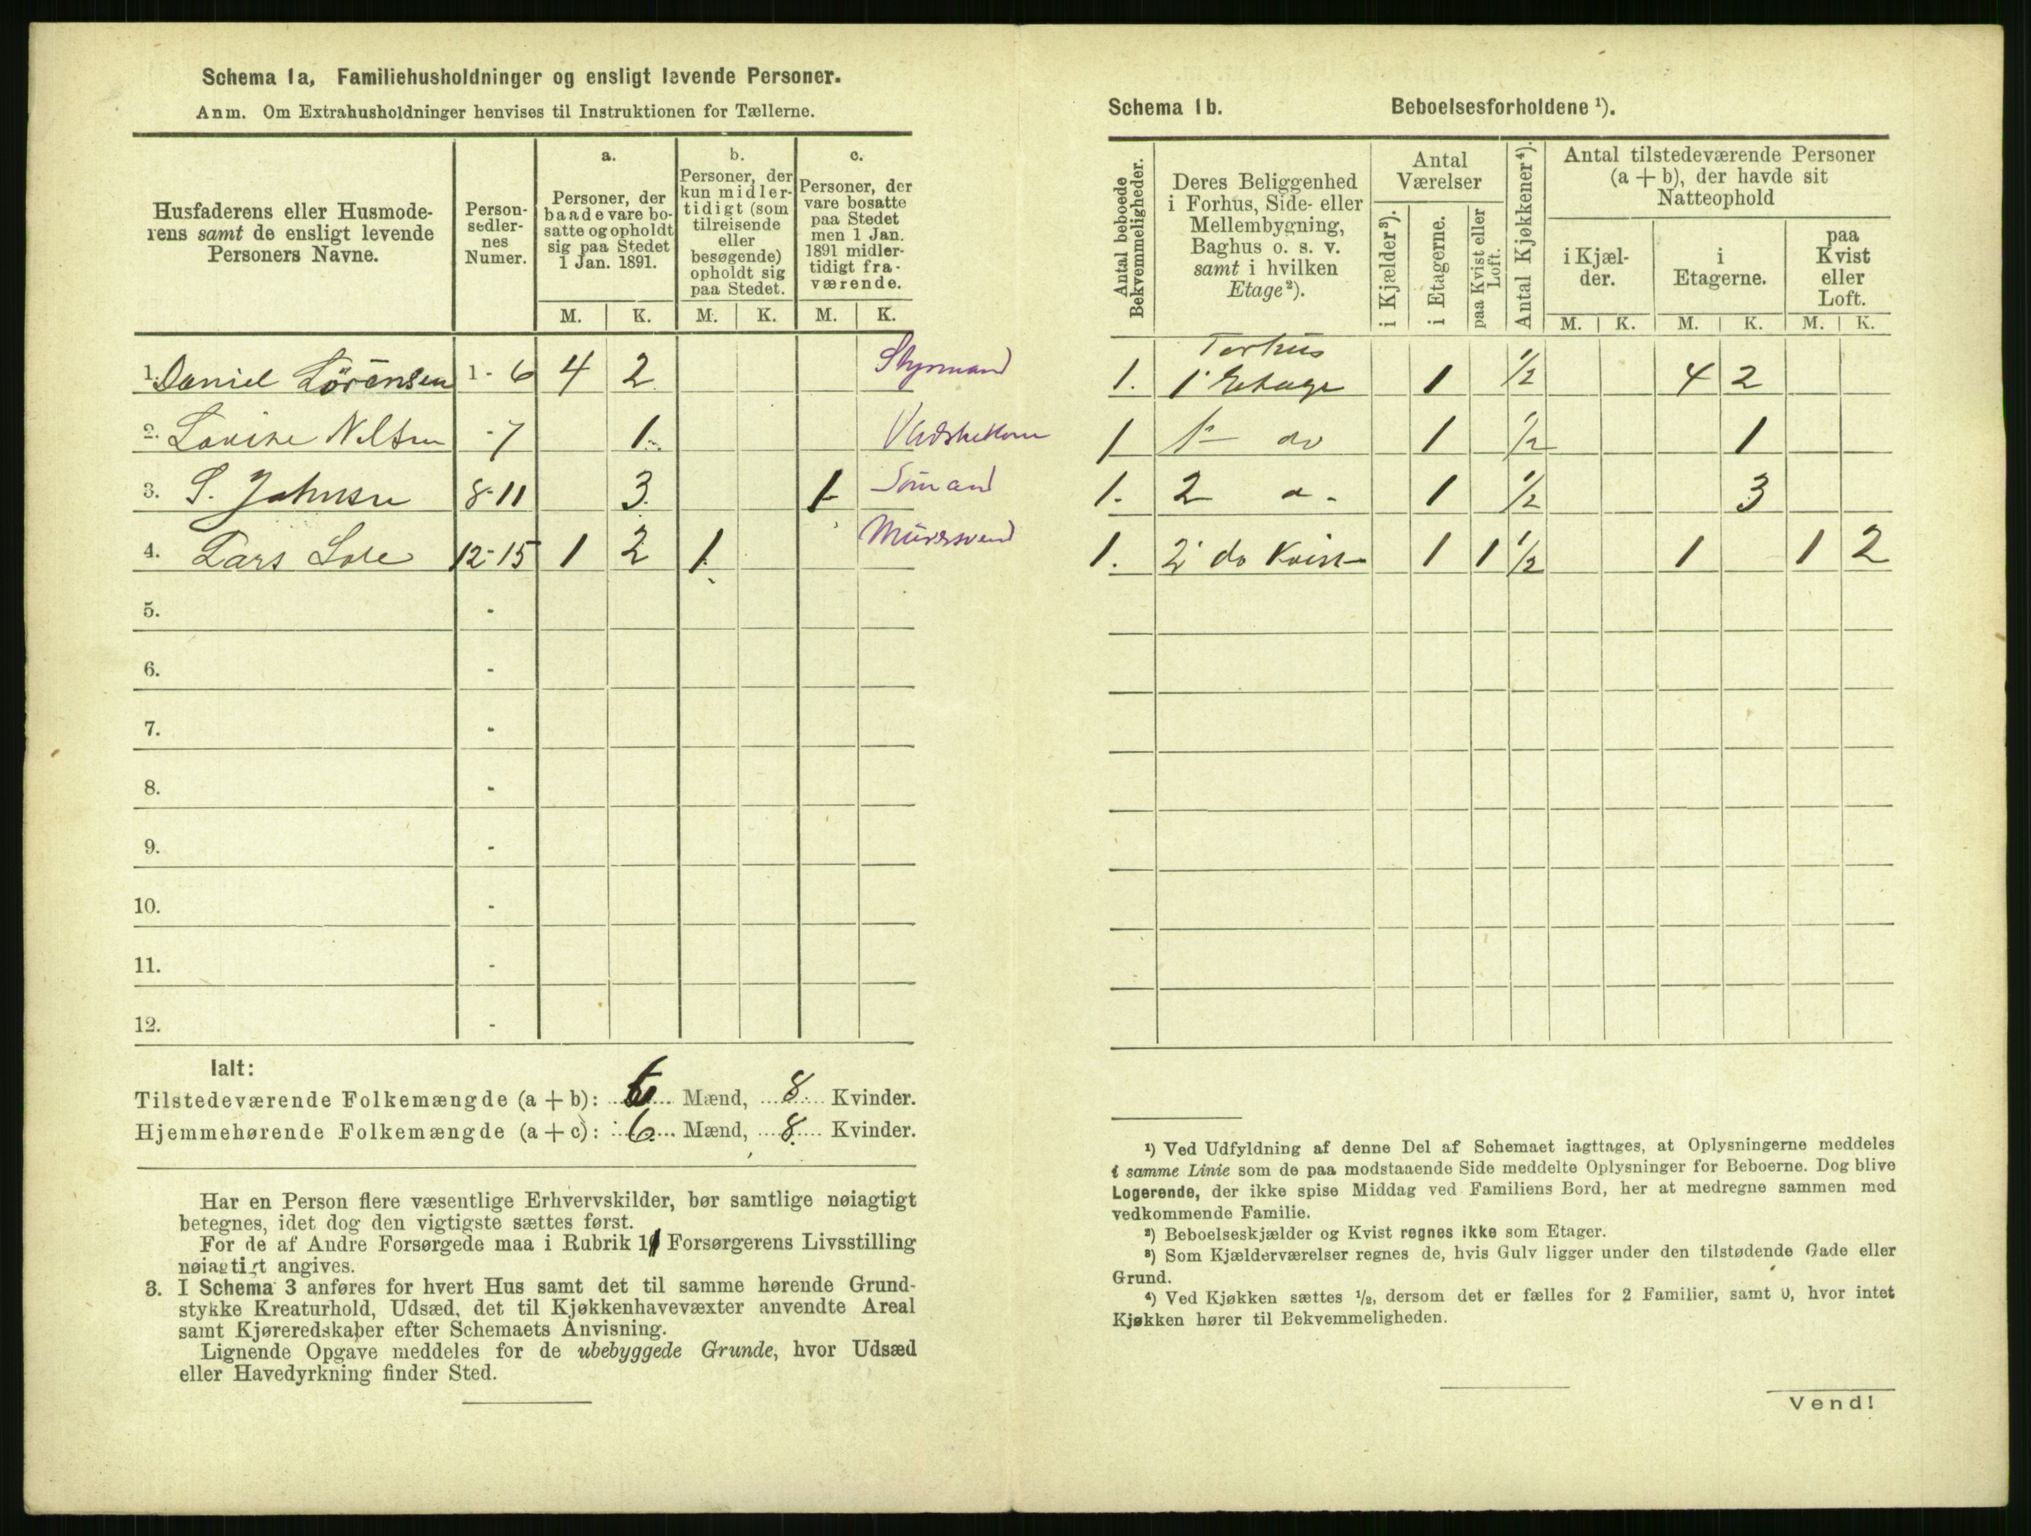 Schema 1a, Familiehusholdninger og ensligt levende Personer.
Anm. Om Extrahusholdninger henvises til Instruktionen for Tællerne.
Husfaderens eller Husmode-
rens samt de ensligt levende
Personers Navne.
Person-
sedler-
nes
Numer.
a.
Personer, der
baade vare bo-
satte og opholdt
sig paa Stedet
1 Jan. 1891.
b.
Personer, der
kun midler-
tidigt (som
tilreisende
eller
besøgende)
opholdt sig
paa Stedet.
c.
Personer, der
vare bosatte
paa Stedet
men 1 Jan.
1891 midler-
tidigt fra-
værende.
M. K. M. K. M. K.
1. Daniel Sörensen 1 - 6 4 2 Styrmand
2. Lovise Nilsen - 7 1 Vadskekone
3. S. Johnsen 8-11 3 1 Sömand
4. Lars Lole 12-15 1 2 1 Mürersvend
5. -
6. -
7. -
8. -
9. -
10. -
11. -
12. -
Ialt:
Tilstedeværende Folkemængde (a + b): 6 Mænd, 8 Kvinder.
Hjemmehørende Folkemængde (a + c): 6 Mænd, 8 Kvinder.
Har en Person flere væsentlige Erhvervskilder, bør samtlige nøiagtigt
betegnes, idet dog den vigtigste sættes først.
For de af Andre Forsørgede maa i Rubrik 11 Forsørgerens Livsstilling
nøiagtigt angives.
3. I Schema 3 anføres for hvert Hus samt det til samme hørende Grund-
stykke Kreaturhold, Udsæd, det til Kjøkkenhavevæxter anvendte Areal
samt Kjøreredskaber efter Schemaets Anvisning.
Lignende Opgave meddeles for de ubebyggede Grunde, hvor Udsæd
eller Havedyrkning finder Sted.
Schema 1b. Beboelsesforholdene ¹).
Antal beboede
Bekvemmeligheder.
Deres Beliggenhed
i Forhus, Side- eller
Mellembygning,
Baghus o. s. v.
samt i hvilken
Etage²).
Antal
Værelser
i Kjælder³).
i Etagerne.
paa Kvist eller
Loft.
Antal Kjøkkener⁴).
Antal tilstedeværende Personer
(a + b), der havde sit
Natteophold
i Kjæl-
der.
i
Etagerne.
paa
Kvist
eller
Loft.
M. K. M. K. M. K.
1. Forhus
1' Etage 1 ½ 4 2
1 1' do 1 ½ 1
1. 2 d - 1 ½ 3
1. 2' do Kvist 1 1 ½ 1 1 2
¹) Ved Udfyldning af denne Del af Schemaet iagttages, at Oplysningerne meddeles
i samme Linie som de paa modstaaende Side meddelte Oplysninger for Beboerne. Dog blive
Logerende, der ikke spise Middag ved Familiens Bord, her at medregne sammen med
vedkommende Familie.
²) Beboelseskjælder og Kvist regnes ikke som Etager.
³) Som Kjælderværelser regnes de, hvis Gulv ligger under den tilstødende Gade eller
Grund.
⁴) Ved Kjøkken sættes ½, dersom det er fælles for 2 Familier, samt 0, hvor intet
Kjøkken hører til Bekvemmeligheden.
Vend!